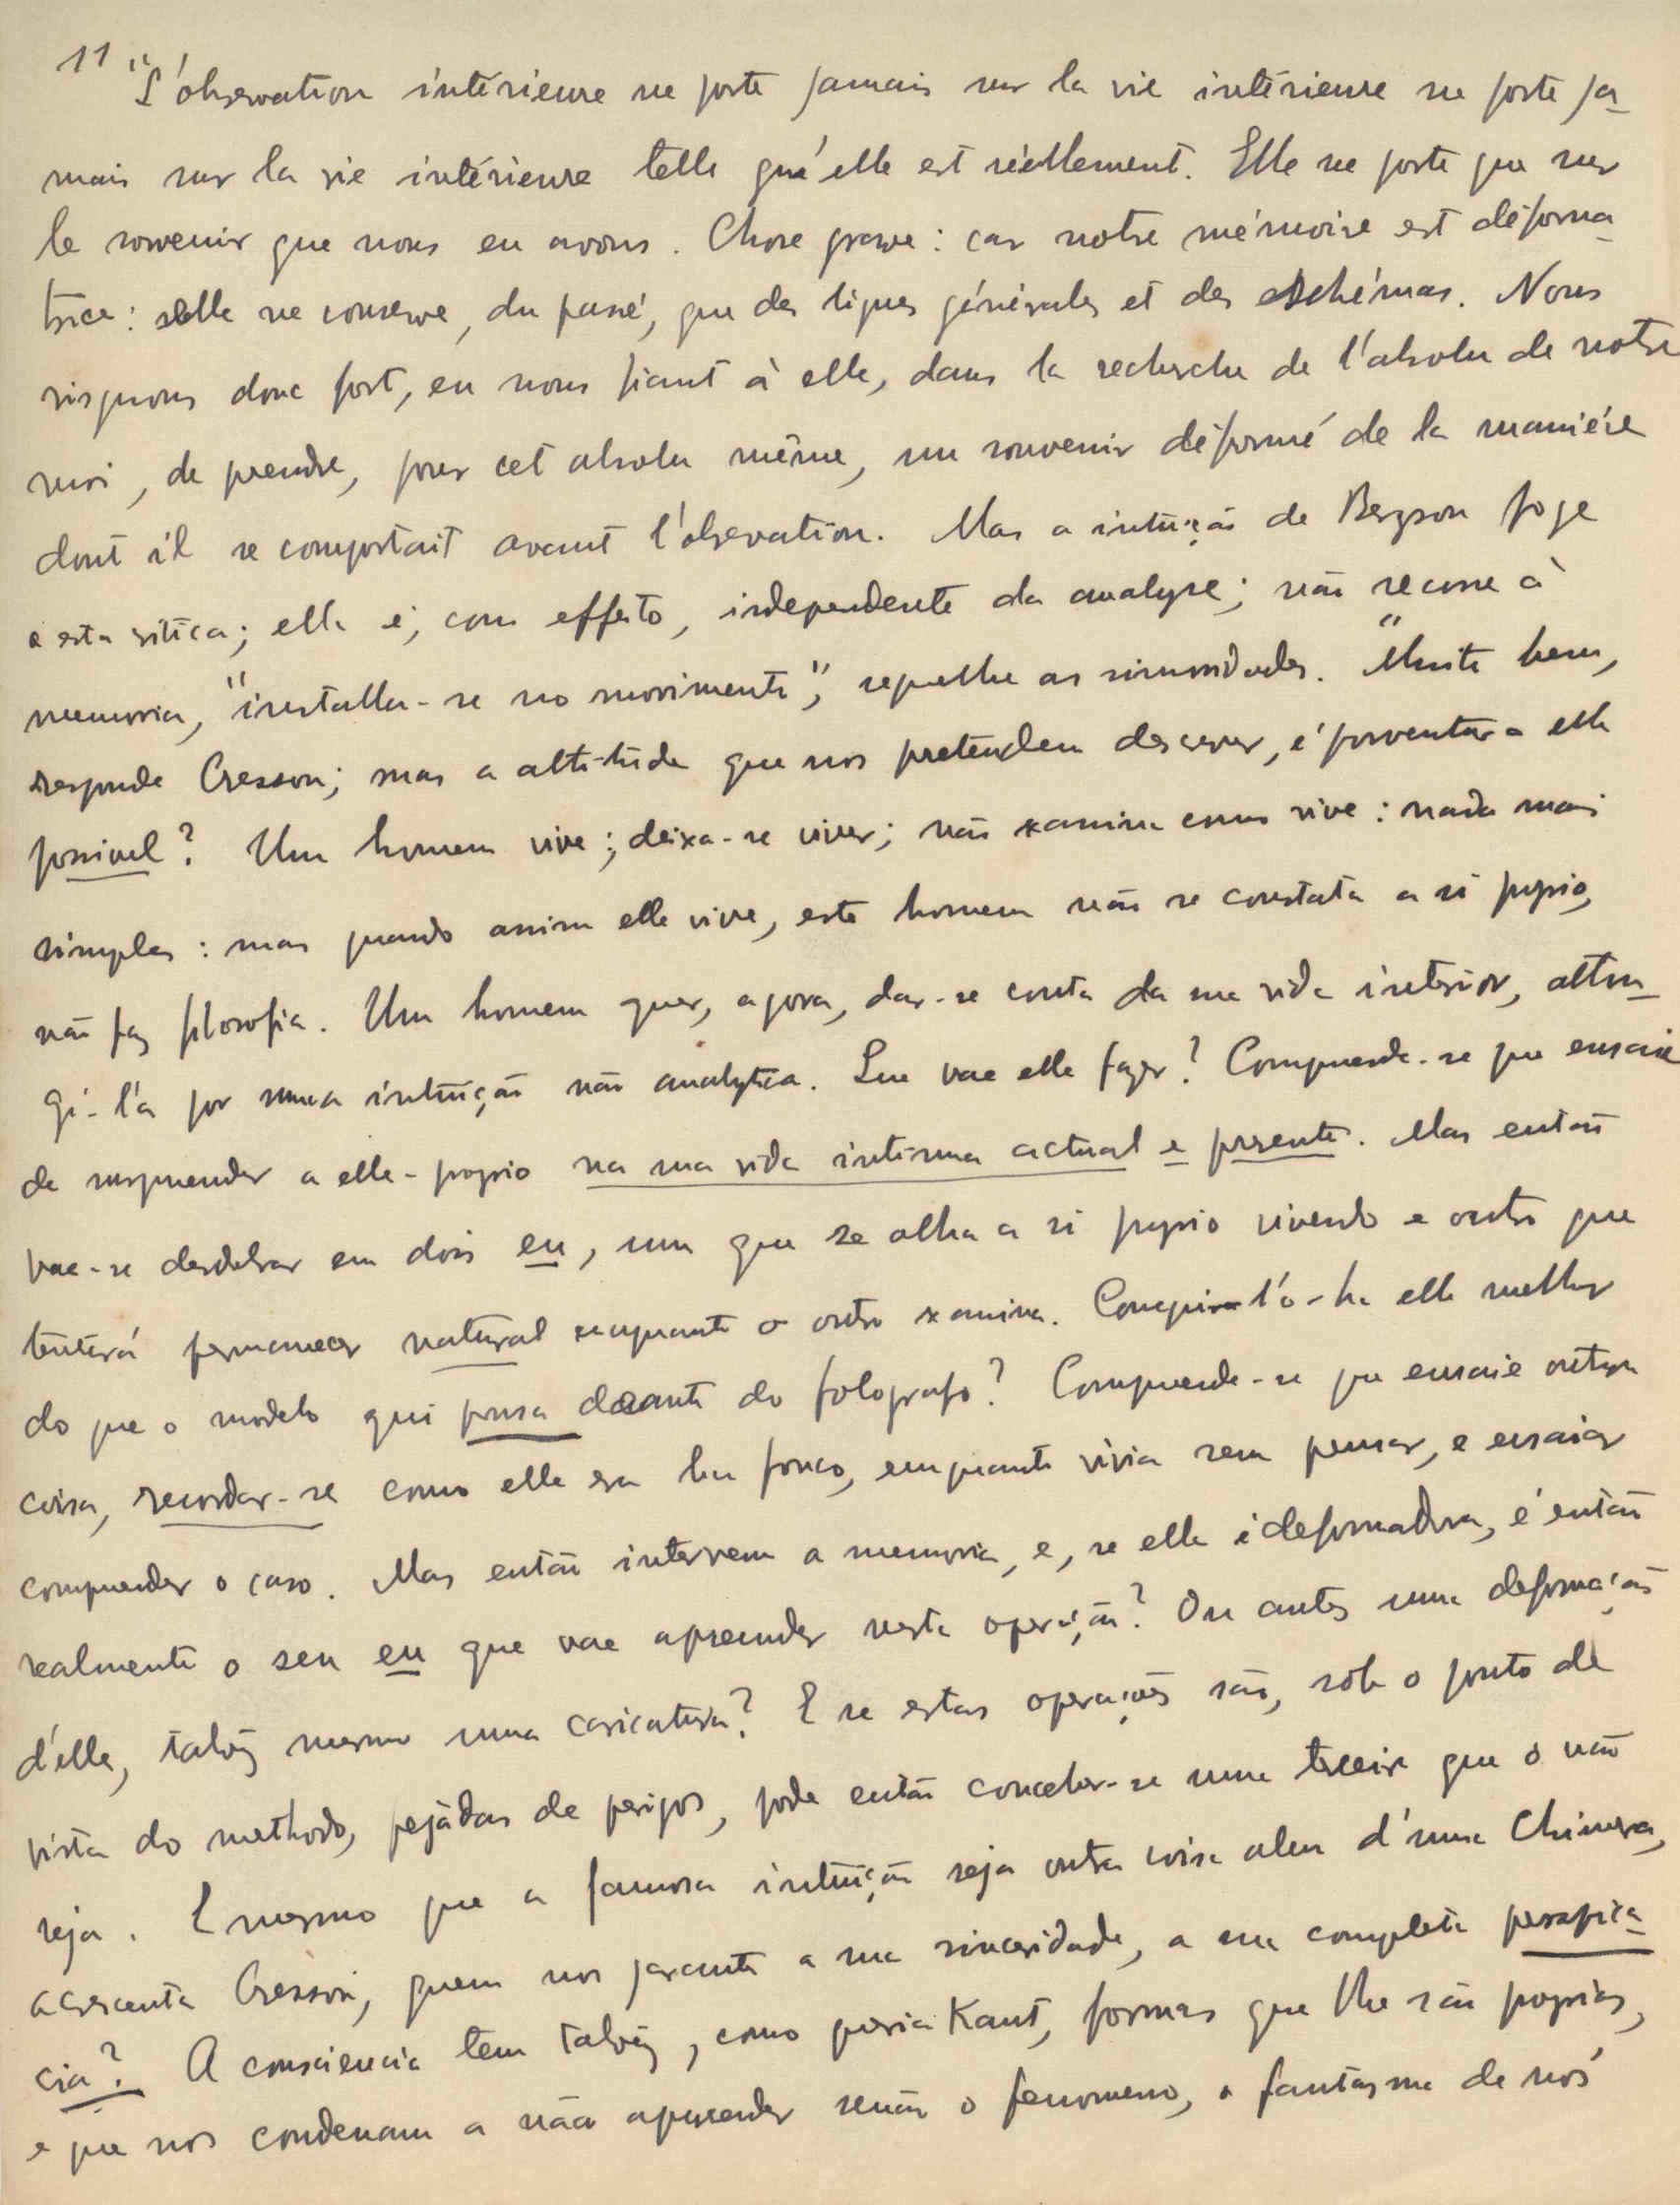 11 "L'observation intérieure ne porte jamais sur la vie intérieure ne porte ja-
mais sur la vie intérieure telle qu'elle est réellement. Elle ne porte que sur
le souvenir que nous en avons. Chose grave: car notre mémoire est déforma-
trice: elle ne conserve, du passé, que des lignes générales et des schémas. Nous
risquons donc fort, en nous fiant à elle, dans la recherche de l'absolu de notre
moi, de prendre, pour cet absolu même, un souvenir déformé de la manière
dont il se comportait avant l'observation. Mas a intuição de Bergson foge
a esta critica; ella é, com effeito, independente da analyse; não recorre á
memoria, "installa-se no movimento", repelle as sinuosidades. "Muito bem,
responde Cresson; mas a attitude que nos pretendem descrever, é porventura ella
possivel? Um homem vive; deixa-se viver; não examina como vive: nada mais
simples: mas quando assim elle vive, este homem não se constata a si proprio,
não faz filosofia. Um homem quer, agora, dar-se conta da sua vida interior, attin-
gi-l'a por uma intuição não analytica. Que vae elle fazer? Comprehende-se que ensaie
de surprender a elle-proprio na sua vida intima actual e presente. Mas então
vae-se desdobrar em dois eu, um que se olha a si proprio vivendo e outro que
tentará permanecer natural emquanto o outro examina. Conseguil'o-ha elle melhor
do que o modelo qui pousa deante do fotografo? Comprehende-se que ensaie outra
coisa, recordar-se como elle era ha pouco, emquanto vivia sem pensar, e ensaiar
comprender o caso. Mas então intervem a memoria, e, se ella é deformadora, é então
realmente o seu eu que vae aprender nesta operação? Ou antes uma deformação
d'elle, talvez mesmo uma caricatura? E se estas operações são, sob o ponto de
vista do methodo, pejádas de perigos, pode então conceber-se uma terceira que o não
seja. E mesmo que a famosa intuição seja outra coisa alem d'uma Chimera,
acrescenta Cresson, quem nos garante a sua sinceridade, a sua completa perspica-
cia? A consciencia tem talvez, como queria Kant, formas que lhe são proprias,
e que nos condenam a não aprender senão o fenomeno, o fantasma de nós